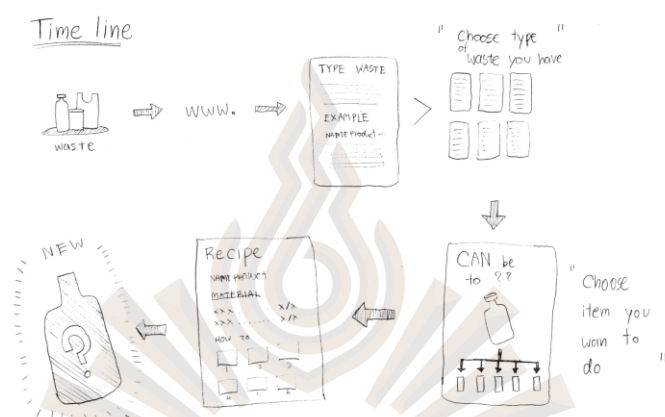 Time line
waste
www.
TYPE WASTE
EXAMPLE
NAME Product
" Choose type "
of
waste you have
CAN be
to ??
" Choose
item you
wan to
do "
Recipe
NAME PRODUCT
MATERIAL
xxx ........ x/x
xxx ........ x/x
HOW TO
1 2 3
4 5 6
NEW
?